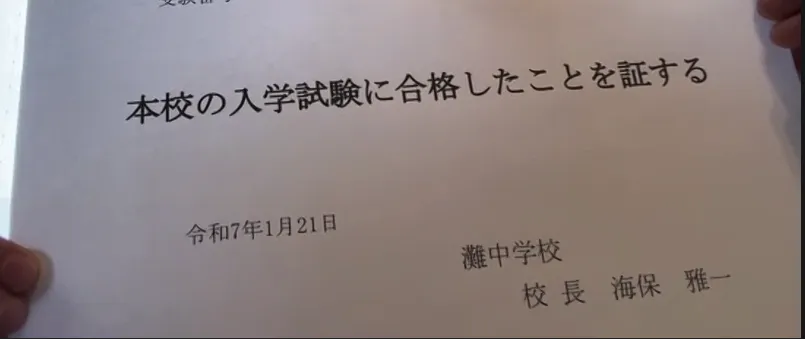 受験番号
本校の入学試験に合格したことを証する
令和7年1月21日
灘中学校
校長 海保 雅一